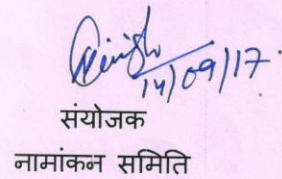 14/09/17
संयोजक
नामांकन समिति